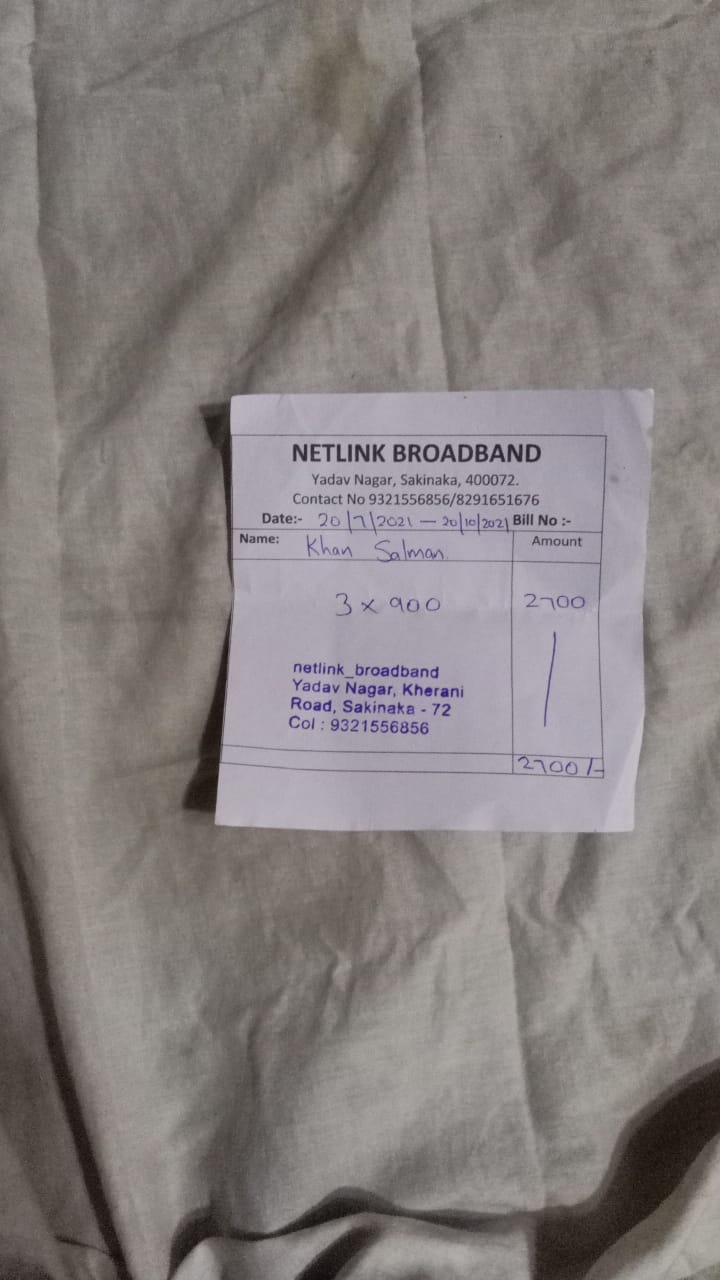 NETLINK BROADBAND
Yadav Nagar, Sakinaka, 400072.
Contact No 9321556856/8291651676
Date:- 20/7/2021 — 20/10/2021 Bill No :-
Name: Khan Salman Amount
3 x 900 2700
netlink_broadband
Yadav Nagar, Kherani
Road, Sakinaka - 72
Col : 9321556856
2700/-